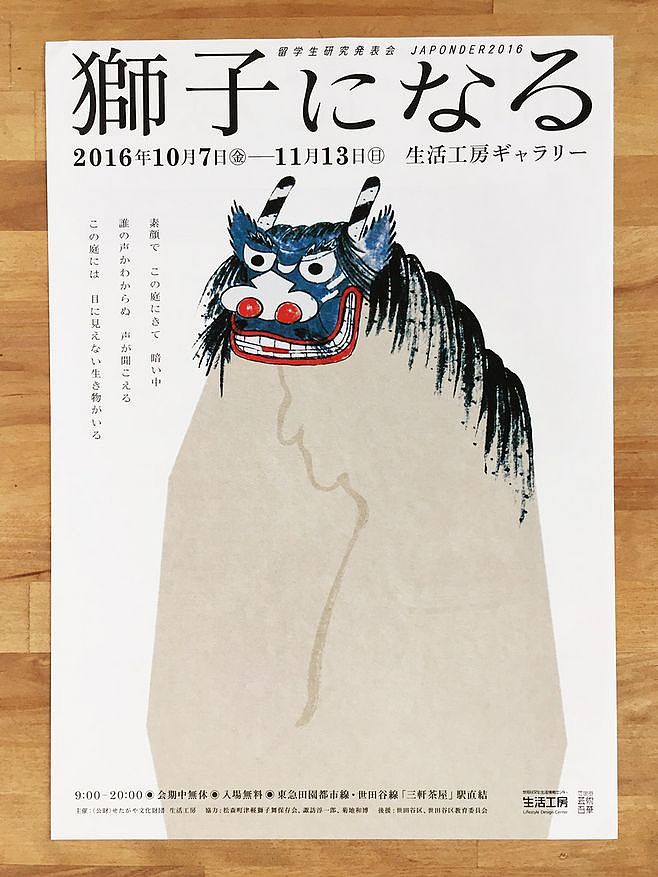 留学生研究発表会 JAPONDER2016
獅子になる
2016年10月7日㊎—11月13日㊐ 生活工房ギャラリー
素顔で この庭にきて 暗い中
誰の声かわからぬ 声が聞こえる
この庭には 目に見えない生き物がいる
9:00–20:00◉会期中無休◉入場無料◉東急田園都市線・世田谷線「三軒茶屋」駅直結
主催：（公財）せたがや文化財団 生活工房 協力：松森町津軽獅子舞保存会、諏訪淳一郎、菊地和博 後援：世田谷区、世田谷区教育委員会
生活工房
Lifestyle Design Center